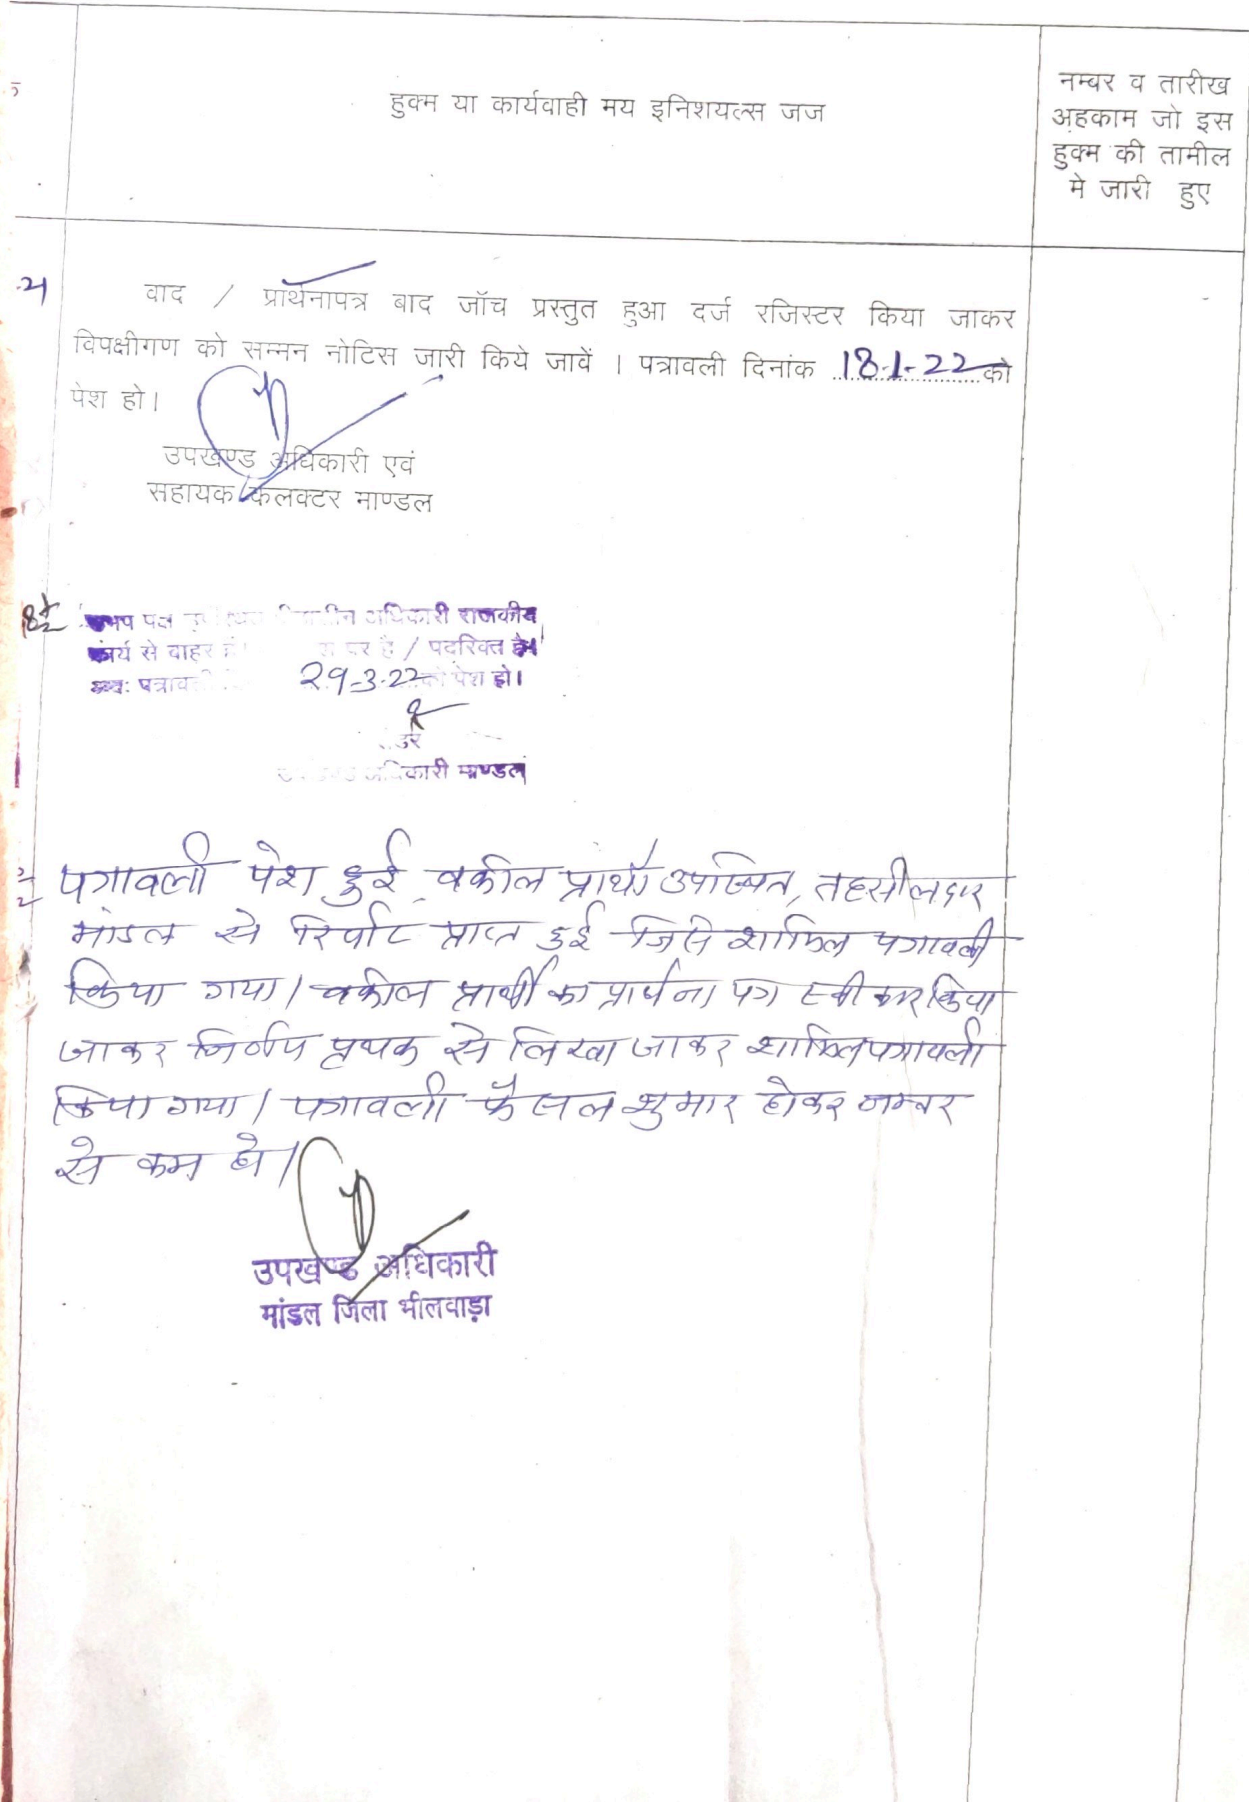 हुक्म या कार्यवाही मय इनिशयल्स जज
नम्बर व तारीख
अहकाम जो इस
हुक्म की तामील
मे जारी हुए
वाद / प्रार्थनापत्र बाद जॉच प्रस्तुत हुआ दर्ज रजिस्टर किया जाकर
विपक्षीगण को सम्मन नोटिस जारी किये जावें । पत्रावली दिनांक 18-1-22 को
पेश हो।
उपखण्ड अधिकारी एवं
सहायक कलक्टर माण्डल
पक्ष अधिकारी राजकीय
कार्य से बाहर है / पदरिक्त है।
अतः 29-3-22 को पेश हो।
अधिकारी माण्डल
पत्रावली पेश हुई वकील प्रार्थी उपस्थित, तहसीलदार
मांडल से रिपोर्ट प्राप्त हुई जिसे शामिल पत्रावली
किया गया। वकील प्रार्थी का प्रार्थना पत्र स्वीकार किया
जाकर निर्णय पृथक से लिखा जाकर शामिल पत्रावली
किया गया। पत्रावली फैसल शुमार होकर नम्बर
से कम हो।
उपखण्ड अधिकारी
मांडल जिला भीलवाड़ा